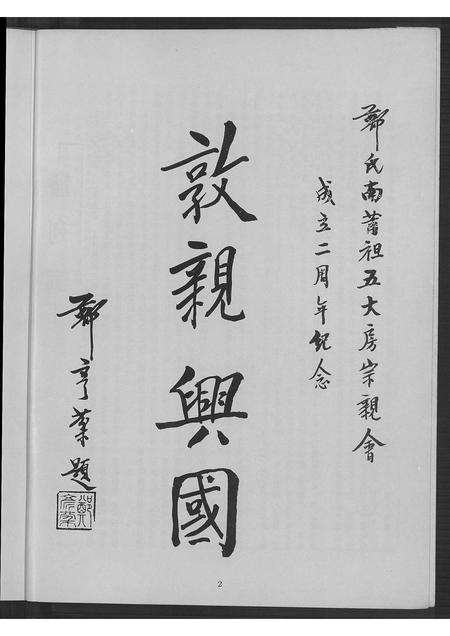 鄭氏南莆祖五大房宗親會
成立二周年紀念
敦親興國
鄭彥棻題
2